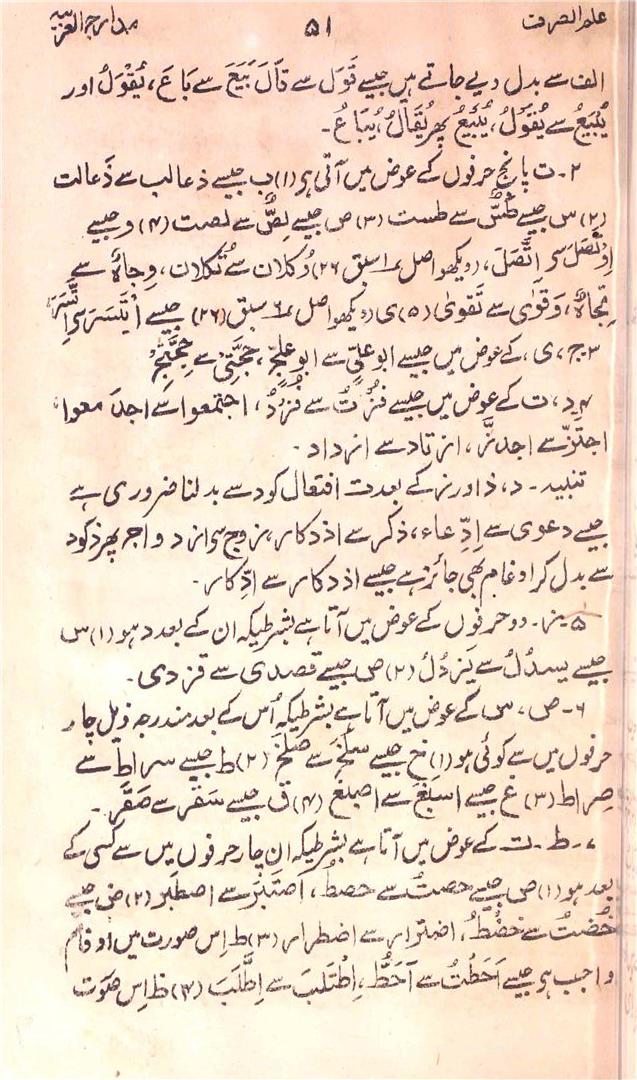 علم الصرف ۵۱ مدارج العربیہ
الف سے بدل دیے جاتے ہیں جیسے قَوَلَ سے قَالَ بَیَعَ سے بَاعَ، یُقْوَلُ اور
یُبْیَعُ سے یُقَوْلُ، یُبَیْعُ پھر یُقَالُ، یُبَاعُ۔
۲۔ ت پانچ حرفوں کے عوض میں آتی ہے (۱) ب جیسے ذعالب سے ذَعالت
(۲) س جیسے طَسٌّ سے طست (۳) ص جیسے لِصٌّ سے لصت (۴) و جیسے
اِوْتَصَلَ سے اِتَّصَلَ، (دیکھو اصل ۱ سبق ۲۶) وُکلان سے تُکلان، وِجاہٌ سے
تِجاہٌ، وَقوٰی سے تَقویٰ (۵) ی (دیکھو اصل ۶ سبق ۲۶) جیسے اِیْتَسَرَ سے اِتَّسَرَ
۳۔ ج، ی، کے عوض میں جیسے ابو علیٍّ سے ابو علجٍّ، حجَّتِیْ سے حجَّتِجْ
۴۔ د، ت کے عوض میں جیسے فُزْتُ سے فُزْدُ، اجتمعوا سے اجدمعوا
اجتزّ سے اجدزَّ، ازتاد سے ازداد۔
تنبیہ۔ د، ذ اور ز کے بعد ت افتعال کو د سے بدلنا ضروری ہے
جیسے دعویٰ سے اِدِّعاء، ذکر سے اذدکار، زوج سے ازدواج پھر ذ کو د
سے بدل کر ادغام بھی جائز ہے جیسے اذدکار سے ادِّکار۔
۵۔ ز۔ دو حرفوں کے عوض میں آتا ہے بشرطیکہ ان کے بعد د ہو (۱) س
جیسے یسدُلُ سے یَزدُلُ (۲) ص جیسے قصدی سے قزدی۔
۶۔ ص، س کے عوض میں آتا ہے بشرطیکہ اُس کے بعد مندرجہ ذیل چار
حرفوں میں سے کوئی ہو (۱) خ جیسے سلَخَ سے صَلَخَ (۲) ط جیسے سراط سے
صِراط (۳) غ جیسے اسبَغَ سے اصبَغَ (۴) ق جیسے سَقَر سے صَقَر۔
۷۔ ط۔ ت کے عوض میں آتا ہے بشرطیکہ ان چار حرفوں میں سے کسی کے
بعد ہو (۱) ص جیسے حصتُ سے حصطُ، اصْتَبَرَ سے اصطَبَر (۲) ض جیسے
خُضتُ سے خُضْطُ، اضترار سے اضطرار (۳) ط اِس صورت میں ادغام
واجب ہے جیسے اَحَطْتُ سے اَحَطُّ، اِطْتَلَبَ سے اِطَّلَبَ (۴) ظ اِس صورت